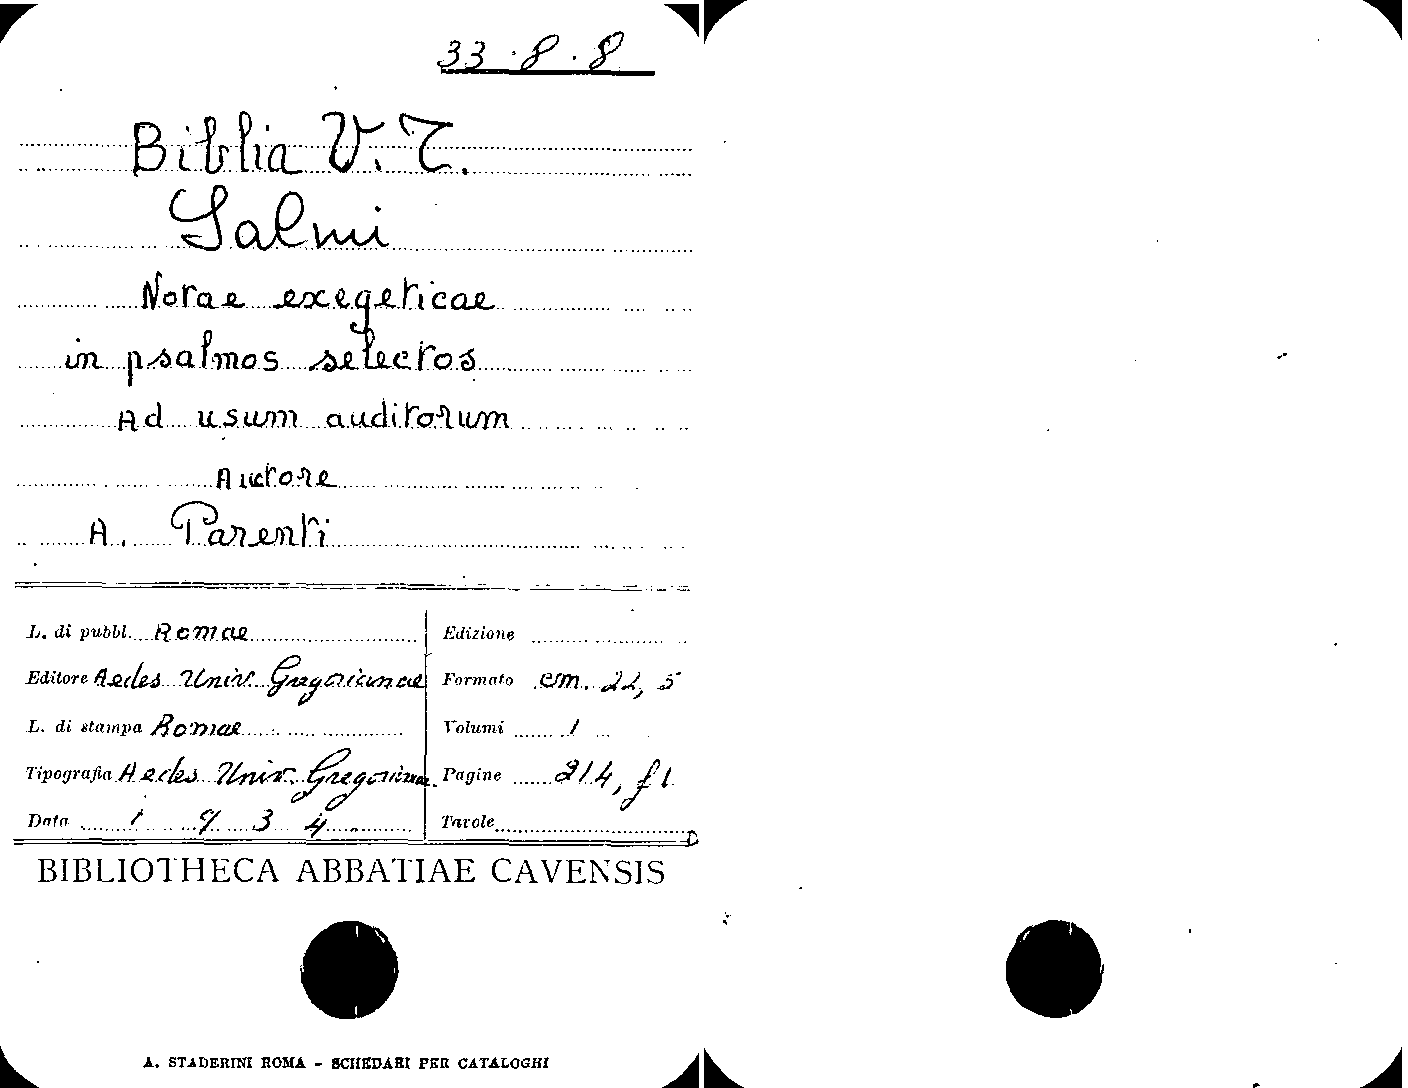 33.8.8
Biblia V.T.
Salmi
Notae exegeticae
in psalmos selectos
Ad usum auditorum
Auctore
A. Parenti
L. di pubbl. Romae
Editore Aedes Univ. Gregorianae
L. di stampa Romae
Tipografia Aedes Univ. Gregorianae.
Data 1934
Edizione
Formato cm. 22,5
Volumi 1
Pagine 214, f1
Tavole
BIBLIOTHECA ABBATIAE CAVENSIS
A. STADERINI ROMA - SCHEDARI PER CATALOGHI